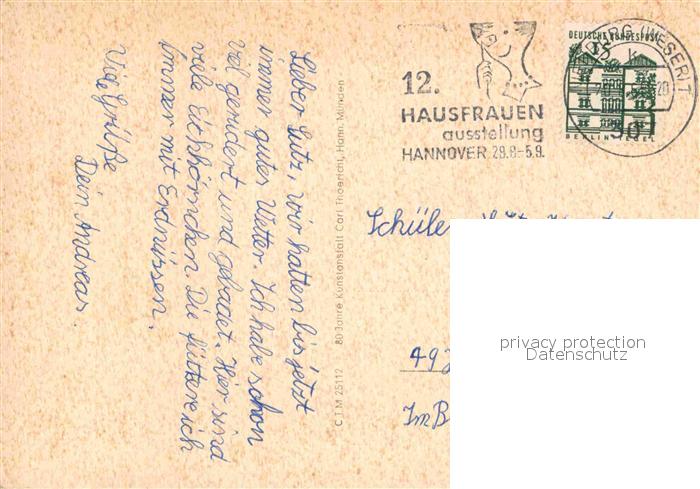 Lieber Lutz, wir hatten bis jetzt
immer gutes Wetter. Ich habe schon
viel gerudert und gebadet. Hier sind
viele Eichhörnchen. Die füttere ich
immer mit Erdnüssen.
Viele Grüße
Dein Andreas.
CTM 25112 80 Jahre Kunstanstalt Carl Thoericht, Hann. Münden
12.
HAUSFRAUEN
ausstellung
HANNOVER 29.8-5.9.
DEUTSCHE BUNDESPOST
15
BERLIN TEGEL
(WESER)
20
Schüler
privacy protection
Datenschutz